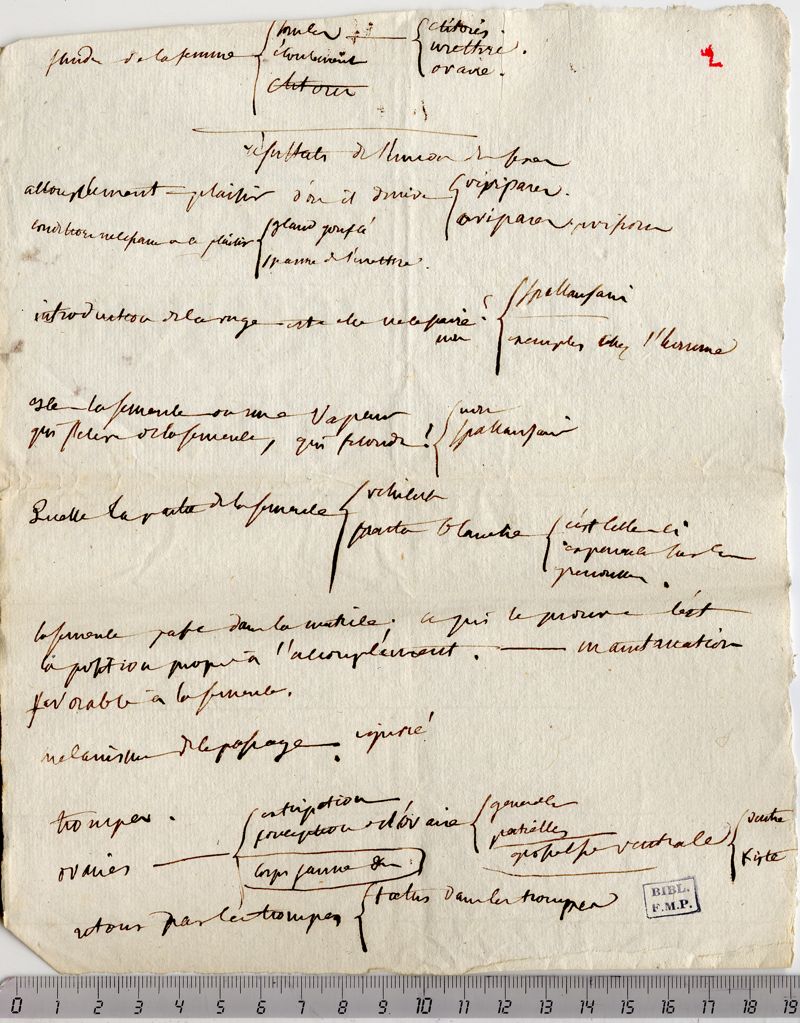 2
de la femme
écoulement
clitoris
clitoris.
urettre.
ovaire.
résultats de l'union des sexes
accouplement — plaisir d'ou il derive
vivipares.
ovipares
condition necessaire a ce plaisir
gland gonflé
spasme de l'urettre.
introduction de la verge est elle necessaire?
non
Spallanzani
exemples chez l'homme
est ce la semence ou une vapeur
qui s'eleve de la semence, qui feconde!
non
Spallanzani
Quelle la partie de la semence
partie blanche
c'est celle ci
experiences sur les
grenouilles.
la semence passe dans la matrice. ce qui le prouve c'est
la position propre à l'accouplement. —
favorable à la semence.
mecanisme de le passage. ignoré
trompes.
ovaires —
conception de l'ovaire
generales
partielles
grossesse ventrale
ventre
kiste
corps jaune
retour par les trompes
foetus dans les trompes
BIBL.
F.M.P.
0 1 2 3 4 5 6 7 8 9 10 11 12 13 14 15 16 17 18 19